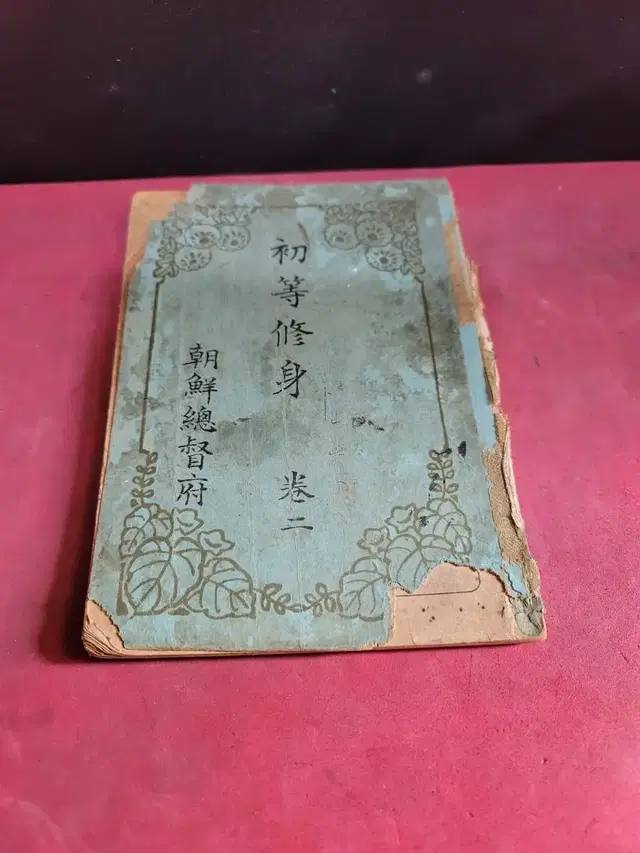 初等修身 卷二
朝鮮總督府